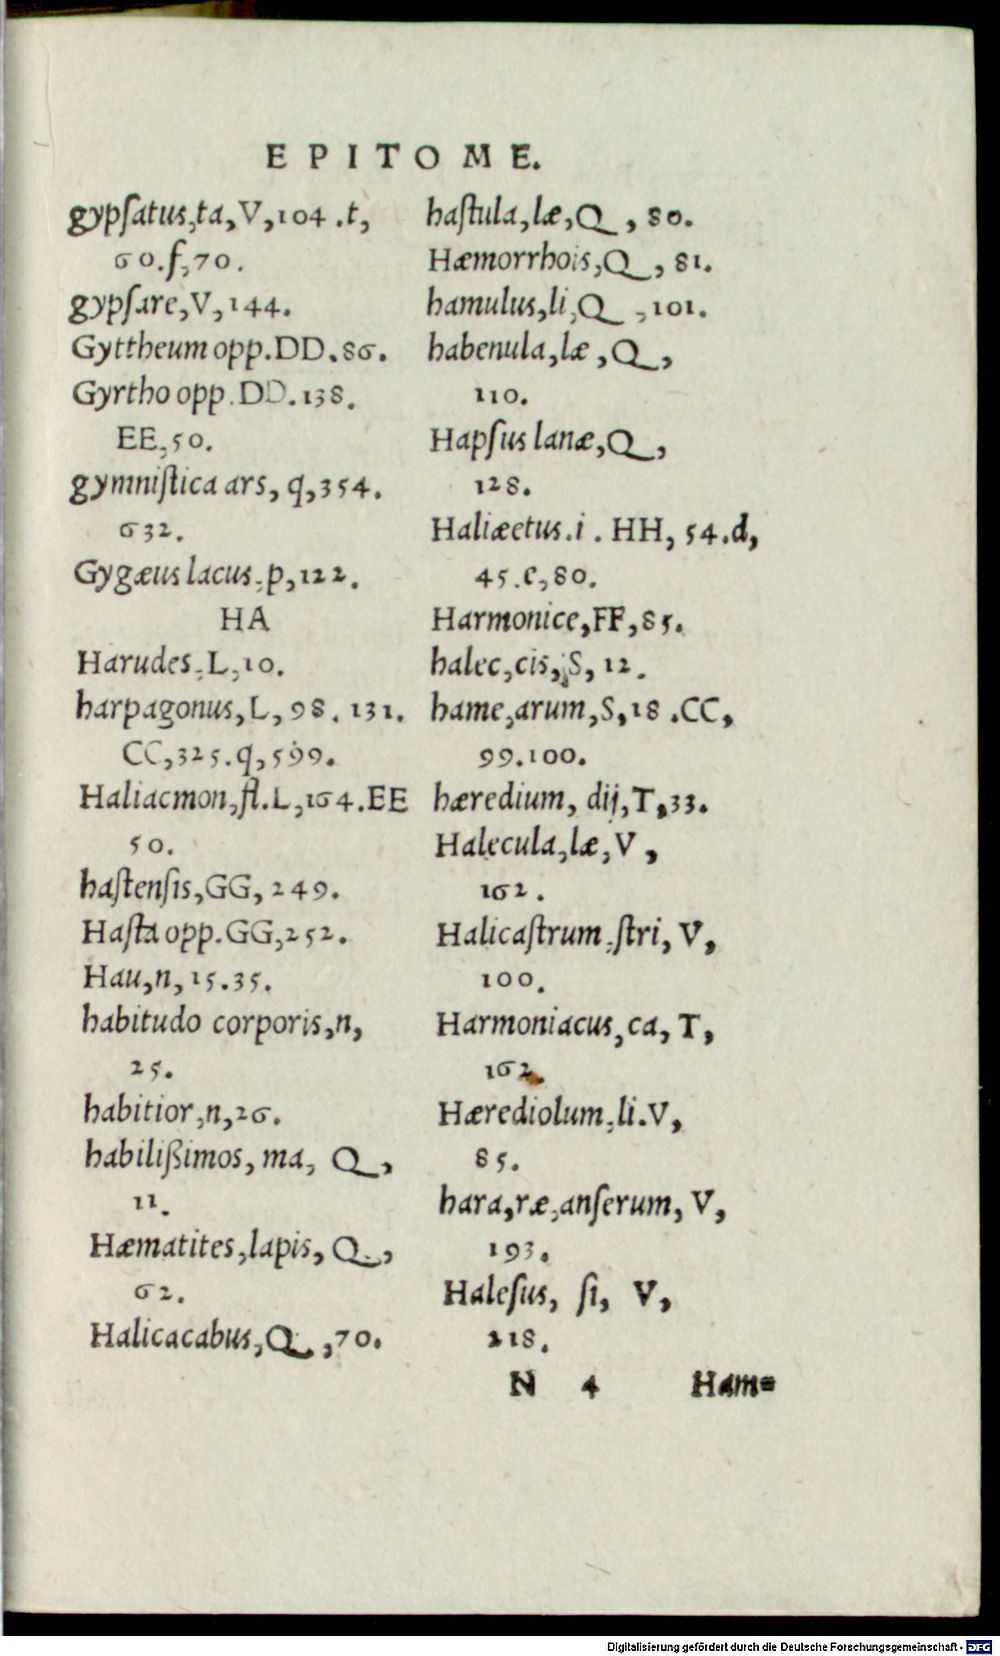 EPITOME.
gypſatus,ta,V,104.t,
60.f,70.
gypſare,V,144.
Gyttheum opp.DD.86.
Gyrtho opp.DD.138.
EE,50.
gymniſtica ars, q,354.
632.
Gygæus lacus,p,122.
HA
Harudes,L,10.
harpagonus,L,98.131.
CC,325.q,599.
Haliacmon,fl.L,164.EE
50.
haſtenſis,GG,249.
Haſta opp.GG,252.
Hau,n,15.35.
habitudo corporis,n,
25.
habitior,n,26.
habilißimos, ma, Q,
11.
Hæmatites,lapis, Q,
62.
Halicacabus,Q,70.
haſtula,læ,Q, 80.
Hæmorrhois,Q, 81.
hamulus,li,Q,101.
habenula,læ,Q,
110.
Hapſus lanæ,Q,
128.
Haliæetus.i. HH, 54.d,
45.e,80.
Harmonice,FF,85.
halec,cis,S, 12.
hame,arum,S,18.CC,
99.100.
hæredium, dij,T,33.
Halecula,læ,V,
162.
Halicaſtrum,ſtri, V,
100.
Harmoniacus,ca, T,
162.
Hærediolum,li.V,
85.
hara,ræ,anſerum, V,
193.
Haleſus, ſi, V,
218.
N 4 Ham=
Digitalisierung gefördert durch die Deutsche Forschungsgemeinschaft - DFG